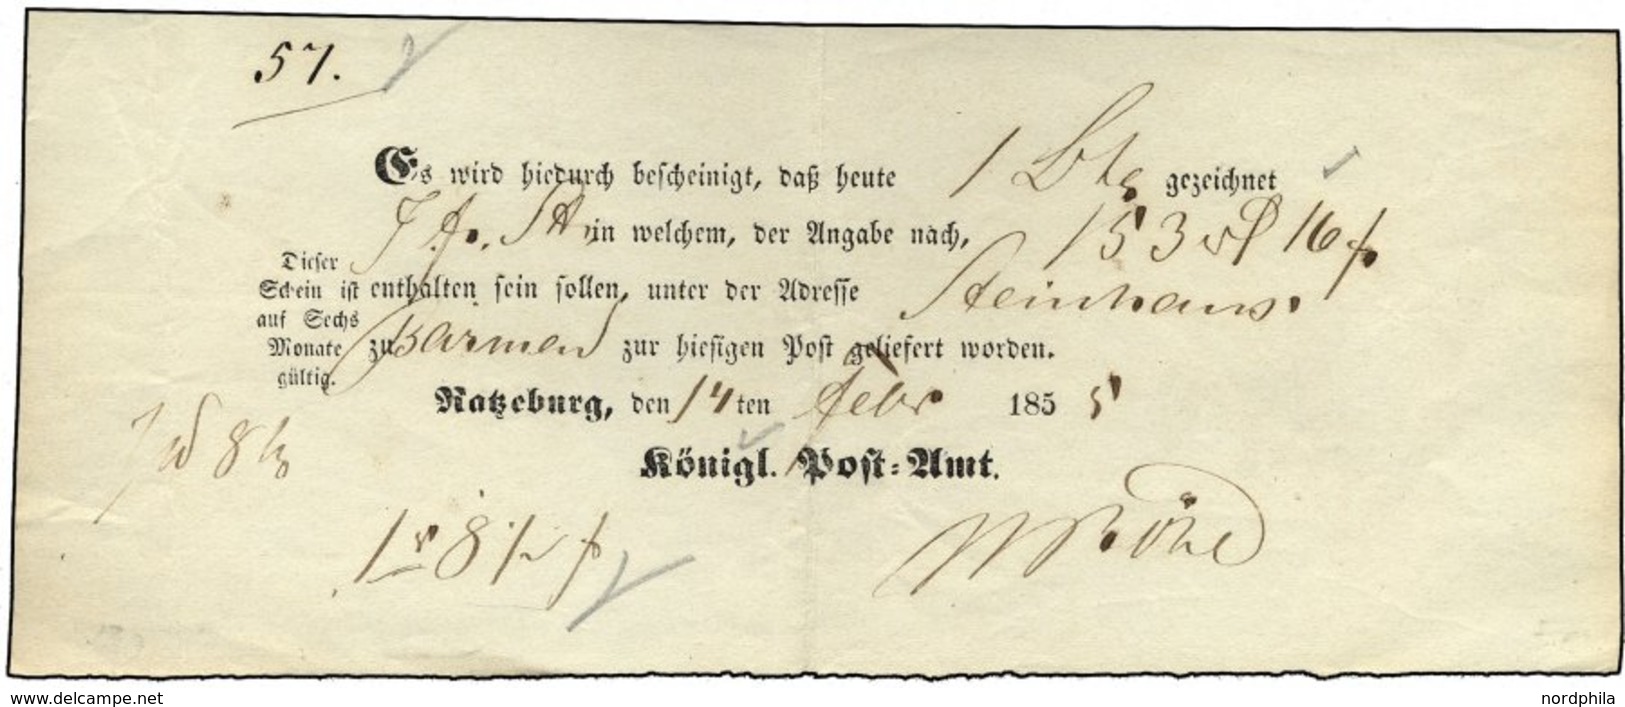 57.
Es wird hiedurch bescheinigt, daß heute 1 gezeichnet
in welchem, der Angabe nach, 153 16
enthalten sein sollen, unter der Adresse Steinhaus
zu Barmen zur hiesigen Post geliefert worden.
Dieser
Schein ist
auf Sechs
Monate
gültig.
Ratzeburg, den 14ten Febr 1855
Königl. Post-Amt.
www.delcampe.net
nordphila